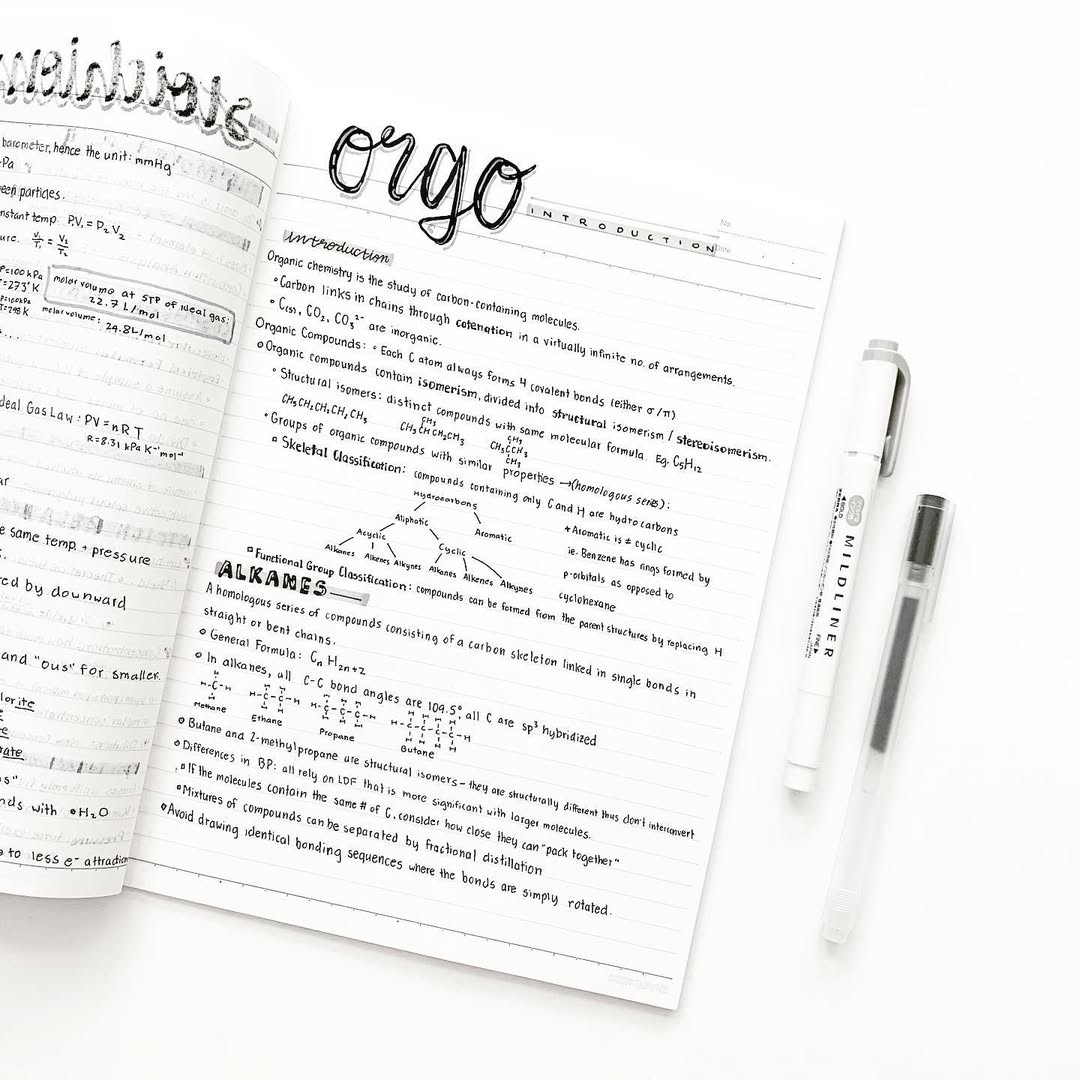 barometer, hence the unit: mmHg
Pa
particles.
nstant temp. P₁V₁ = P₂V₂
ure. V₁/T₁ = V₂/T₂
P=100 kPa
T=273°K
molar volume at STP of ideal gas:
22.7 L/mol
P=100kPa
T=298K
molar volume: 24.8L/mol
deal Gas Law: PV = nRT
R=8.31 kPa K⁻¹mol⁻¹
e same temp. + pressure
ed by downward
and "ous" for smaller.
lorite
rate
nds with •H₂O
e to less e⁻ attraction
orgo
INTRODUCTION
No.
Date
introduction
Organic chemistry is the study of carbon-containing molecules.
• Carbon links in chains through catenation in a virtually infinite no. of arrangements.
• C(s), CO₂, CO₃²⁻ are inorganic.
Organic Compounds: • Each C atom always forms 4 covalent bonds (either σ/π)
• Organic compounds contain isomerism, divided into structural isomerism / stereoisomerism.
• Structural isomers: distinct compounds with same molecular formula. Eg. C₅H₁₂
CH₃CH₂CH₂CH₂CH₃
CH₃
CH₃CHCH₂CH₃
CH₃
CH₃CCH₃
CH₃
• Groups of organic compounds with similar properties → (homologous series):
▫ Skeletal Classification: compounds containing only C and H are hydrocarbons
Hydrocarbons
Aliphatic
Aromatic
Acyclic
Cyclic
Alkanes Alkenes Alkynes Alkanes Alkenes Alkynes
* Aromatic is ≠ cyclic
ie. Benzene has rings formed by
p-orbitals as opposed to
cyclohexane
▫ Functional Group Classification: compounds can be formed from the parent structures by replacing H
ALKANES
A homologous series of compounds consisting of a carbon skeleton linked in single bonds in
straight or bent chains.
• General Formula: CₙH₂ₙ₊₂
• In alkanes, all C-C bond angles are 109.5°, all C are sp³ hybridized
H H H H H H H H H H
H-C-H H-C-C-H H-C-C-C-H H-C-C-C-C-H
H H H H H H H H H H
Methane Ethane Propane Butane
• Butane and 2-methylpropane are structural isomers - they are structurally different thus don't interconvert
• Differences in BP: all rely on LDF that is more significant with larger molecules.
▫ If the molecules contain the same # of C, consider how close they can "pack together"
• Mixtures of compounds can be separated by fractional distillation
• Avoid drawing identical bonding sequences where the bonds are simply rotated.
BOLD
MILDLINER
FINE